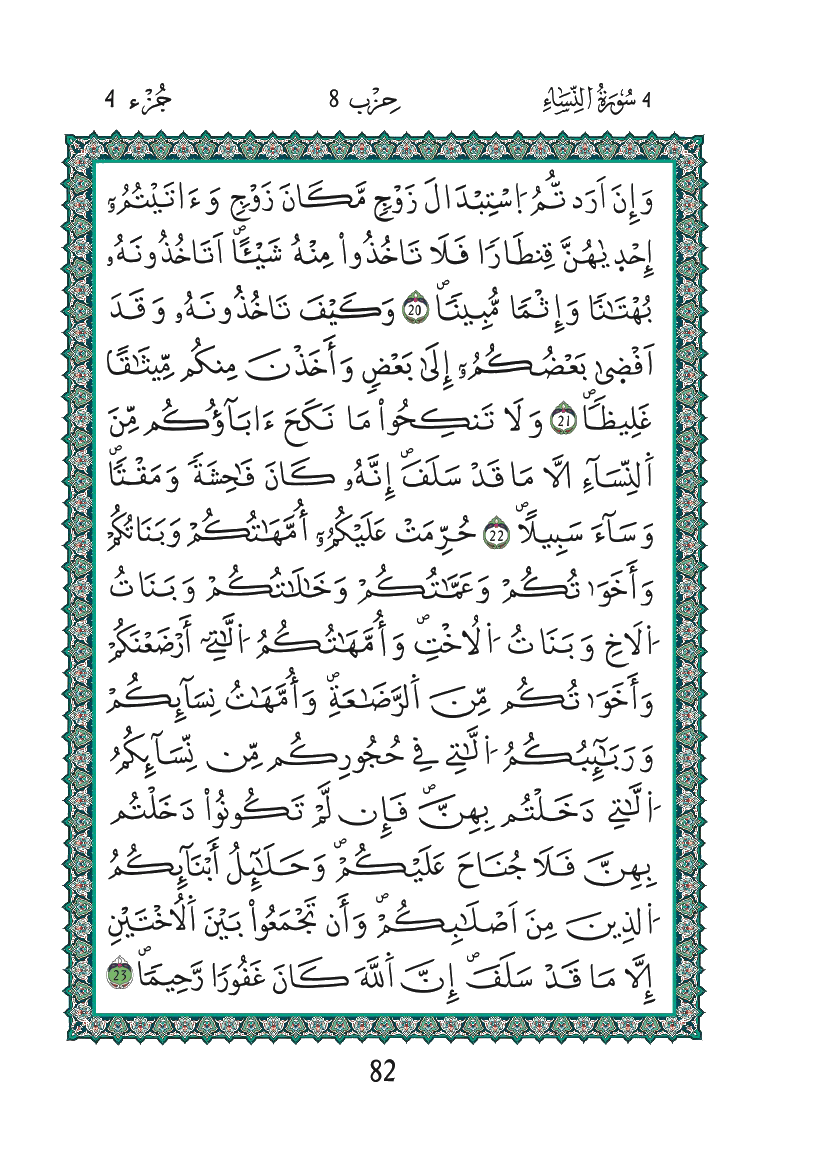 4 سُورَةُ النِّسَاءِ حِزْب 8 جُزْء 4
وَإِنَ اَرَدتُّمُ اُسْتِبْدَالَ زَوْجٖ مَّكَانَ زَوْجٖ وَءَاتَيْتُمُۥٓ
إِحْدٜيٰهُنَّ قِنطَارٗا فَلَا تَاخُذُواْ مِنْهُ شَيْـًٔاۖ اَتَاخُذُونَهُۥ
بُهْتَٰنٗا وَإِثْمٗا مُّبِينٗاۖ 20 وَكَيْفَ تَاخُذُونَهُۥ وَقَدَ
اَفْضٜىٰ بَعْضُكُمُۥٓ إِلَىٰ بَعْضٖ وَأَخَذْنَ مِنكُم مِّيثَٰقًا
غَلِيظٗاۖ 21 وَلَا تَنكِحُواْ مَا نَكَحَ ءَابَآؤُكُم مِّنَ
اَ۬لنِّسَآءِ الَّا مَا قَدْ سَلَفَۖ إِنَّهُۥ كَانَ فَٰحِشَةٗ وَمَقْتٗاۖ
وَسَآءَ سَبِيلًاۖ 22 حُرِّمَتْ عَلَيْكُمُۥٓ أُمَّهَٰتُكُمْ وَبَنَاتُكُمْ
وَأَخَوَٰتُكُمْ وَعَمَّٰتُكُمْ وَخَٰلَٰتُكُمْ وَبَنَاتُ
اُ۬لَاخِ وَبَنَاتُ اُ۬لُاخْتِۖ وَأُمَّهَٰتُكُمُ اُ۬لَّٰتِےٓ أَرْضَعْنَكُمْ
وَأَخَوَٰتُكُم مِّنَ اَ۬لرَّضَٰعَةِۖ وَأُمَّهَٰتُ نِسَآئِكُمْ
وَرَبَٰٓئِبُكُمُ اُ۬لَّٰتِے فِے حُجُورِكُم مِّن نِّسَآئِكُمُ
اُ۬لَّٰتِے دَخَلْتُم بِهِنَّۖ فَإِن لَّمْ تَكُونُواْ دَخَلْتُم
بِهِنَّ فَلَا جُنَاحَ عَلَيْكُمْۖ وَحَلَٰٓئِلُ أَبْنَآئِكُمُ
اُ۬لذِينَ مِنَ اَصْلَٰبِكُمْۖ وَأَن تَجْمَعُواْ بَيْنَ اَ۬لُاخْتَيْنِ
إِلَّا مَا قَدْ سَلَفَۖ إِنَّ اَ۬للَّهَ كَانَ غَفُورٗا رَّحِيمٗاۖ 23
82